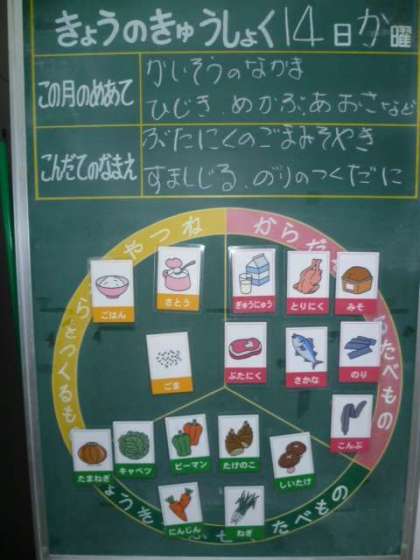 きょうのきゅうしょく 14日か曜
この月のめあて
かいそうのなかま
ひじき、めかぶ、あおさなど
こんだてのなまえ
ぶたにくのごまみそやき
すましじる、のりのつくだに
やつね
からだ
たべもの
らをつくるも
たべもの
ごはん
さとう
ぎゅうにゅう
とりにく
みそ
ごま
ぶたにく
さかな
のり
こんぶ
たまねぎ
キャベツ
ピーマン
たけのこ
しいたけ
にんじん
ねぎ